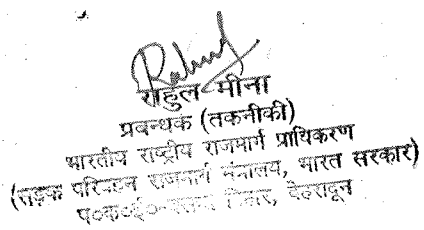 Rahul
राहुल मीना
प्रबन्धक (तकनीकी)
भारतीय राष्ट्रीय राजमार्ग प्राधिकरण
(सड़क परिवहन राजमार्ग मंत्रालय, भारत सरकार)
प०का०ई०- विहार, देहरादून